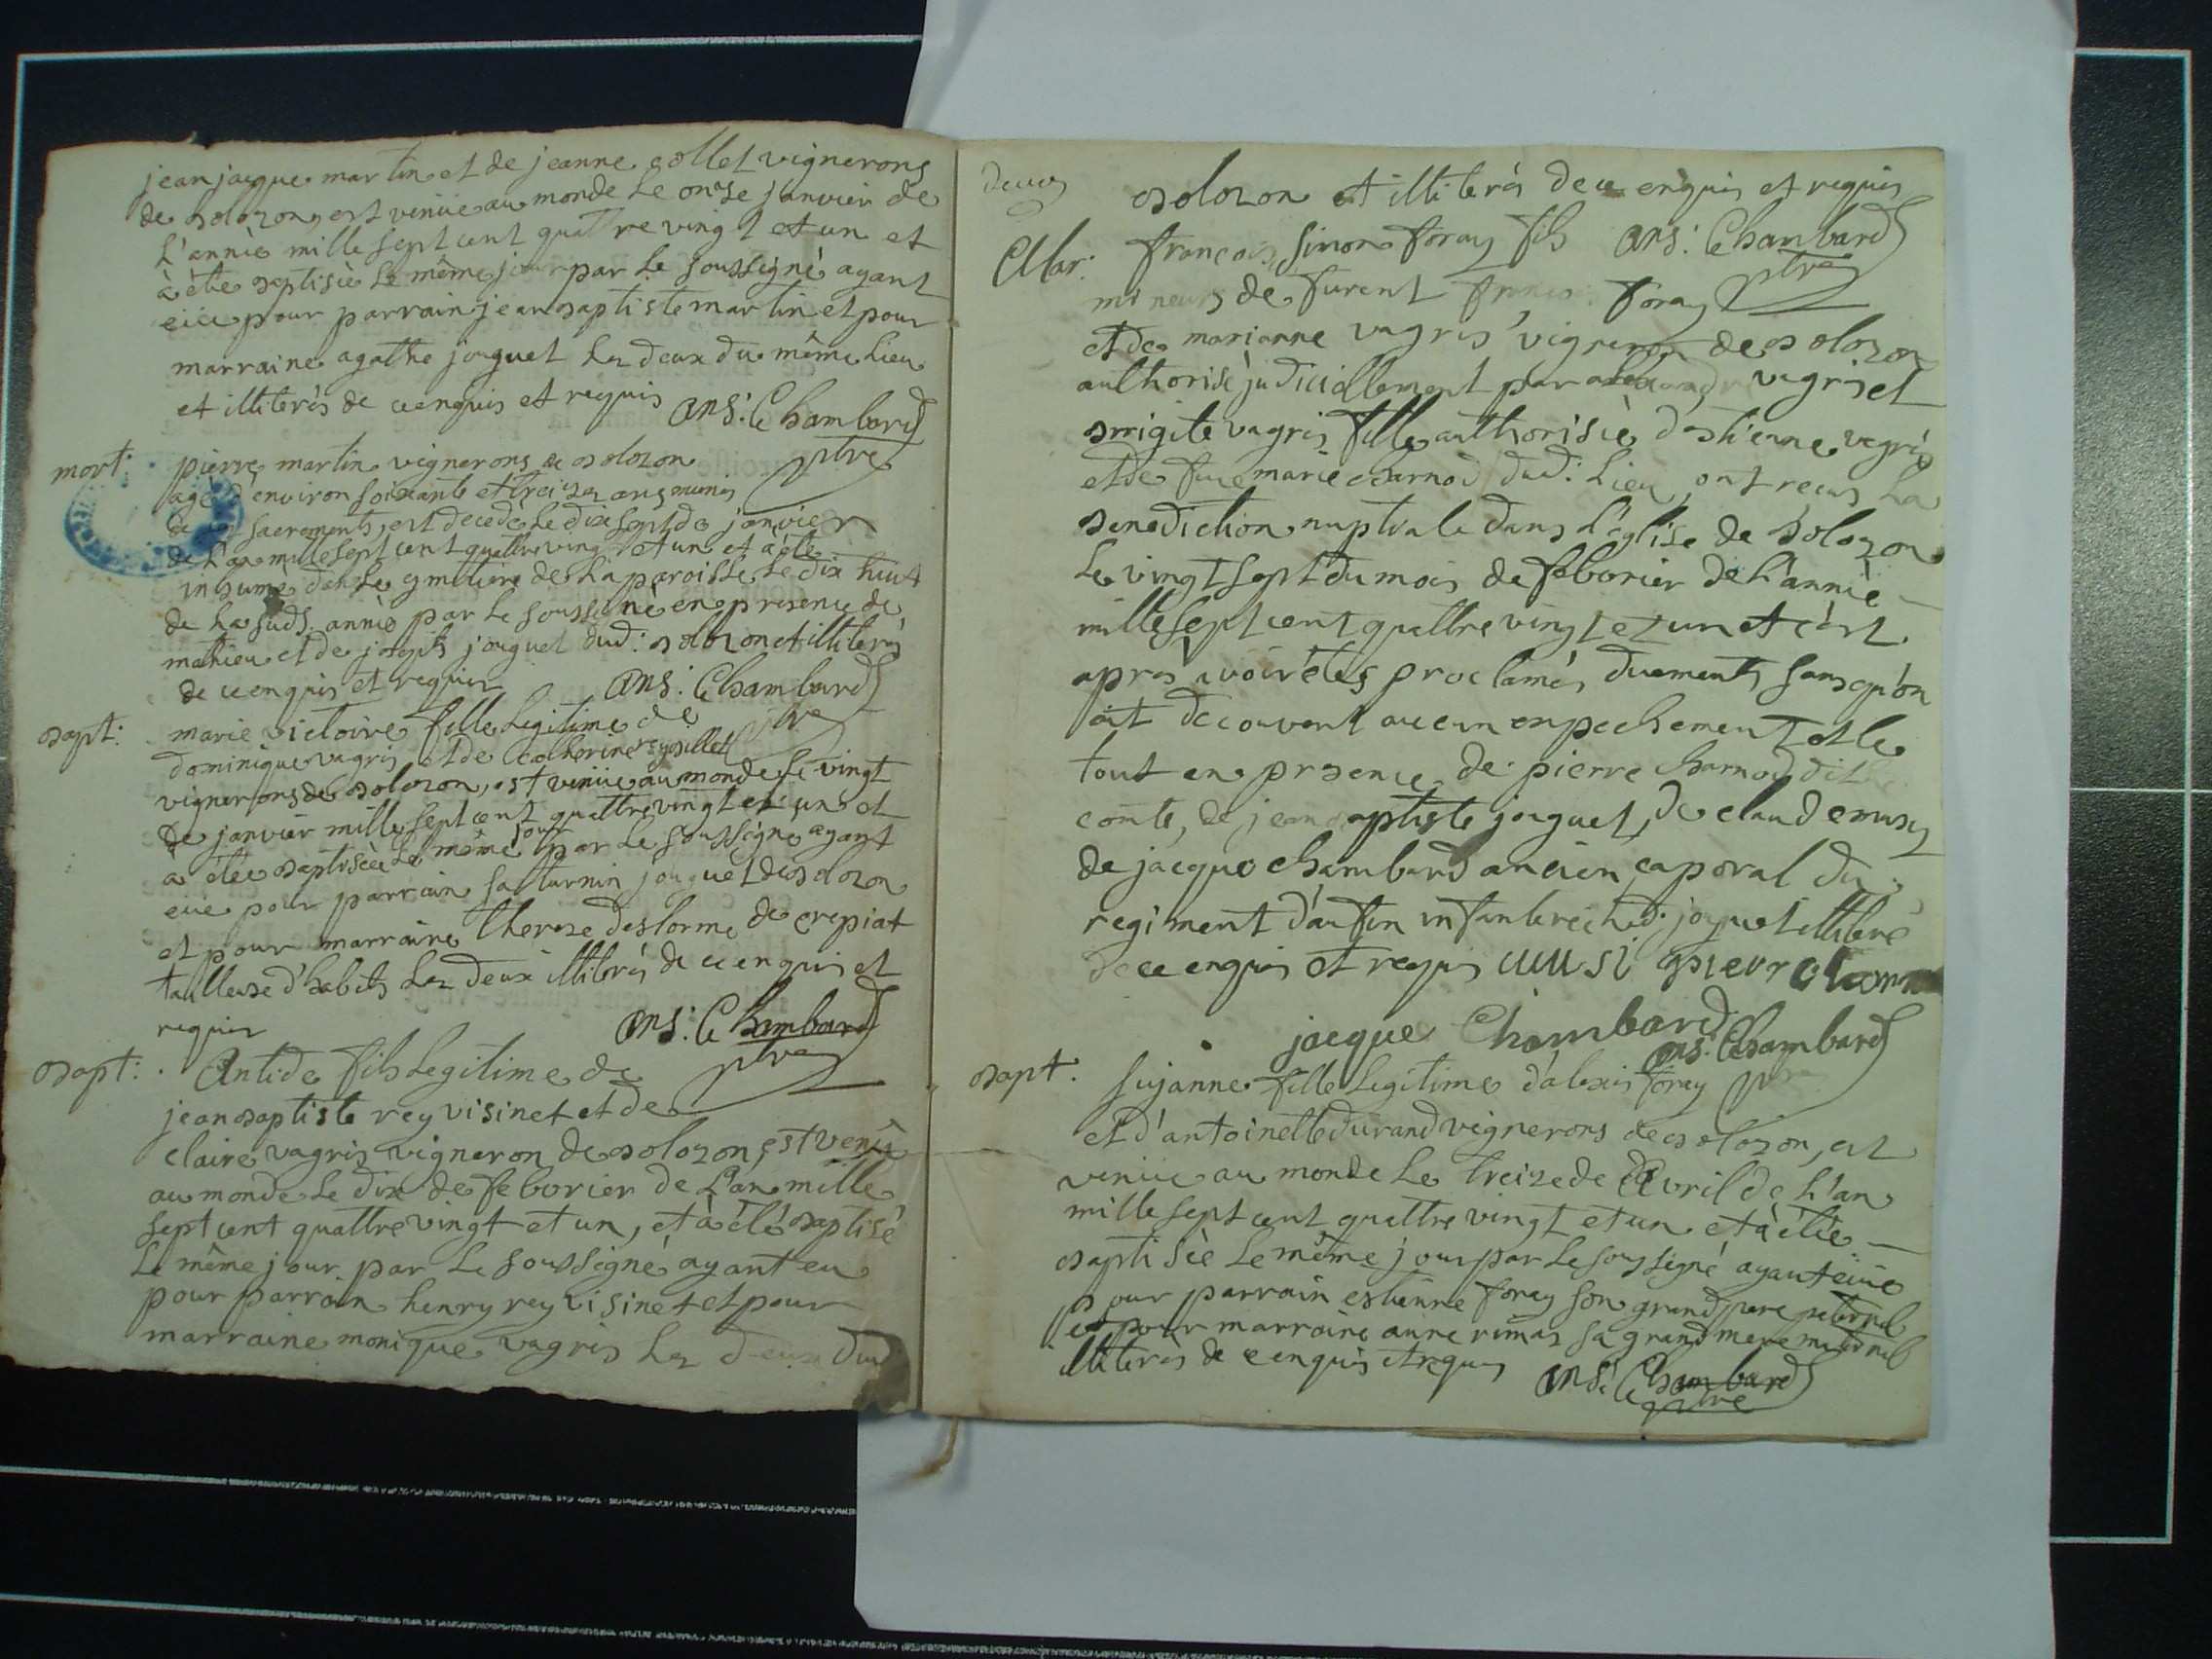 jean jacque martin et de jeanne collet vignerons
de bolozon, est venüe au monde le onse janvier de
l'année mille sept cent quatre vingt et un et
à étée baptisée le même jour par le soussigné ayant
eüe pour parrain jean baptiste martin et pour
marraine agathe joguet les deux du même lieu
et illiterés de ce enquis et requis ans: Chambard
ptre
mort: pierre martin vignerons de bolozon
agé d'environ soixante et treize ans munis
sacrements, est decedé le dix sept de janvier
de l'an mille sept cent quattre vingt et un et à été
inhumé dans le cymitiere de la paroisse le dix huit
de la sudt. année par le soussigné en presence de
mathieu et de joseph joguet dud: bolozon et illiterés
de ce enquis et requis ans: Chambard
ptre
bapt: marie victoire fille legitime de
dominique vagris et de catherine reyvisillet
vignerons de bolozon, est venüe au monde le vingt
de janvier mille sept cent quattre vingt et un et
a étée baptisée le même jour par le soussigné ayant
eüe pour parrain satturnin joguet de bolozon
et pour marraine therese deslorme de crepiat
tailleuse d'habits les deux illiterés de ce enquis et
requis ans: Chambard
ptre
bapt: Antide fils legitime de
jean baptiste rey visinet et de
claire vagris vigneron de bolozon, est venû
au monde le dix de feborier de l'an mille
sept cent quattre vingt et un, et à été baptisé
le même jour par le soussigné ayant eu
pour parrain henry rey visinet et pour
marraine monique vagris les deux dud
bolozon et illiterés de ce enquis et requis
Mar: françois simon foray fils ans: Chambard
ptre
mineurs de furent foray
et de marianne vagris vigneron de bolozon
authorisé judiciellement par vagris et
brigite vagris fille authorisée d'estienne vagris
et de fuë marie charnod dud: lieu, ont reçus la
benediction nuptiale dans l'église de bolozon
le vingt sept du mois de feborier de l'année
mille sept cent quattre vingt et un et c'est
aprés avoir étés proclamés duements sans qu'on
ait decouvert aucun enpechement et le
tout en prsence de pierre charnod dit
comte, de jean baptiste joguet, de claud emusy
de jacque chambard ancien caporal du
regiment d'aufin infanterie led: joguet illiteré
de ce enquis et requis
jacque Chambard
ans: Chambard
bapt. sujanne fille legitime d'alexis foray
et d'antoinette durand vignerons de bolozon, est
venüe au monde le treize de Avril de l'an
mille sept cent quattre vingt et un et à étée
baptisée le même jour par le soussigné ayant eüe
pour parrain estienne foray son grand pere paternel
et pour marraine anne rimas sa grand mere maternel
illiterés de ce enquis et requis ans: Chambard
ptre